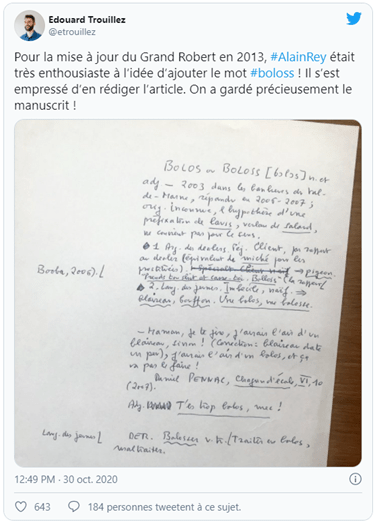 Edouard Trouillez
@etrouillez
Pour la mise à jour du Grand Robert en 2013, #AlainRey était
très enthousiaste à l'idée d'ajouter le mot #boloss ! Il s'est
empressé d'en rédiger l'article. On a gardé précieusement le
manuscrit !
BOLOS ou BOLOSS [bɔlɔs] n. et
adj — 2003 dans les banlieues du Val-
de-Marne, répandu en 2005-2007 ;
orig. inconnue, l'hypothèse d'une
préfixation de lauss, verlan de salaud,
ne convient pas pour le sens.
1 Arg. des dealers Péj. Client, par rapport
au dealer (équivalent de miché pour les
prostituées). → pigeon
Booba, 2006).
2. Lang. des jeunes. Imbécile, naïf. ⇒
blaireau, bouffon. Une bolos, une bolosse.
— Maman, je te jure, j'aurais l'air d'un
blaireau, sinon ! (Correction : blaireau date
un peu), j'aurais l'air d'un bolos, et ça
va pas le faire !
Daniel PENNAC, Chagrin d'école, VI, 10
(2007).
T'es trop bolos, mec !
Lang. des jeunes
DÉR. Bolosser v. tr. (Traiter en bolos,
maltraiter.
12:49 PM · 30 oct. 2020
643
184 personnes tweetent à ce sujet.